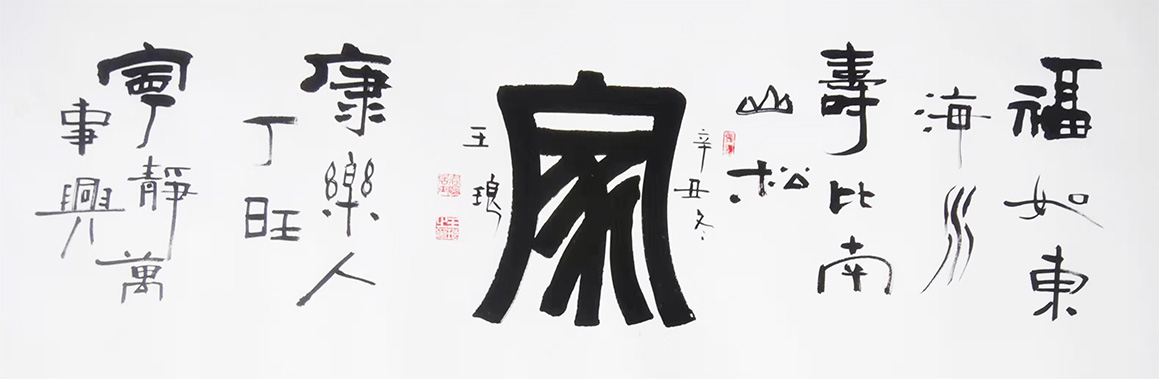 福如東
海水
壽比南
山松
辛丑冬
家
王琅
康樂人
丁旺
寧靜萬
事興